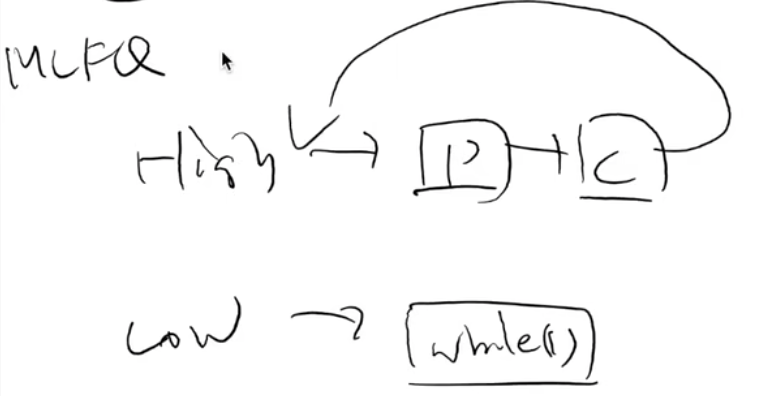 MLFQ
High → P → C
Low → while(1)